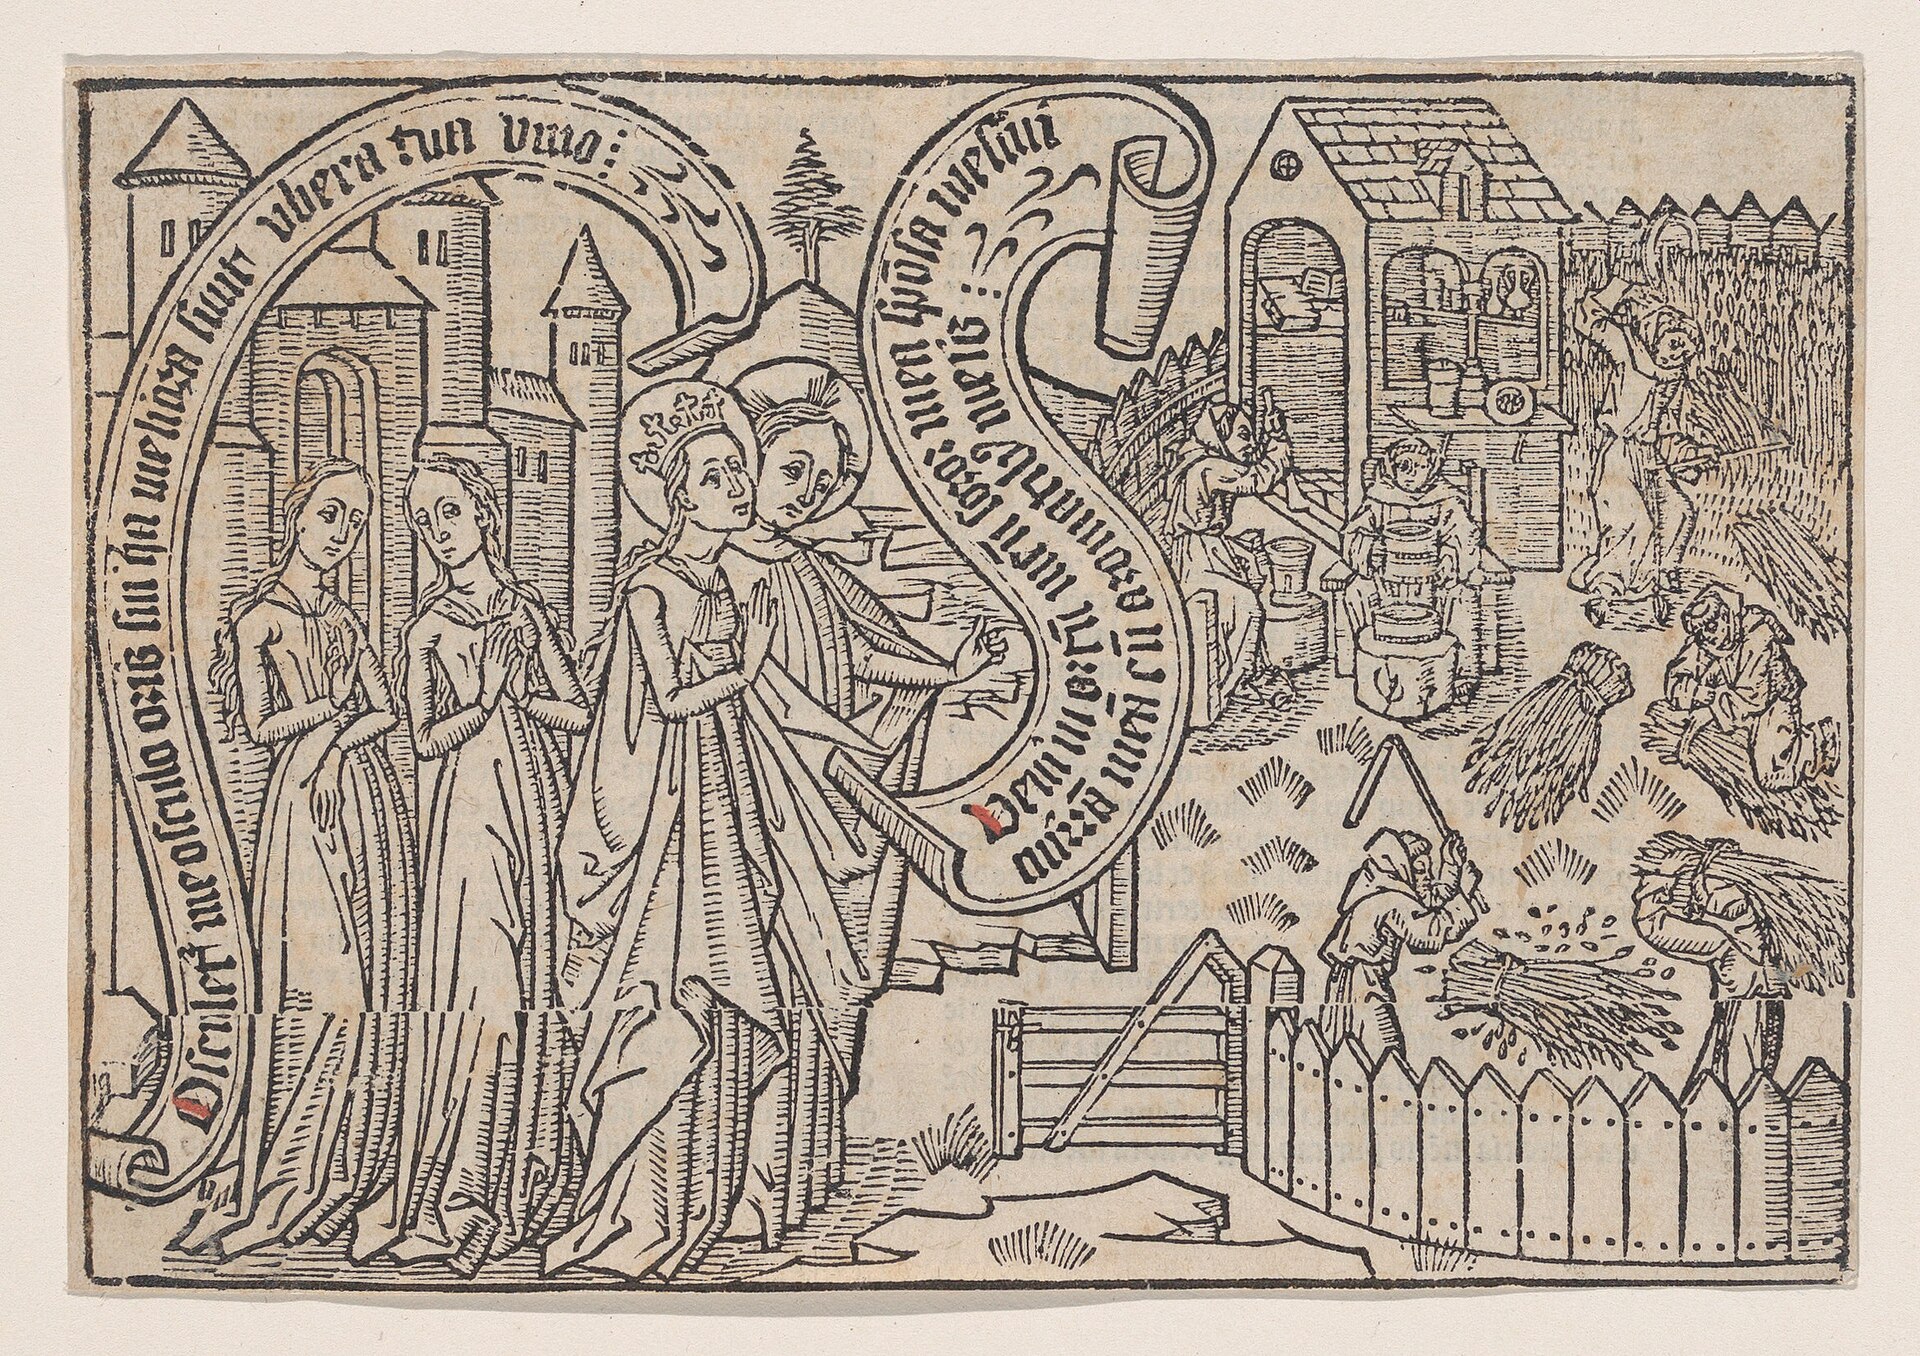 Osculet᷑ me osculo oris sui q̄a meliora sunt vbera tua vino:
Veni in ortū meū soror mea spōsa messui
mirrā meā cū aromatibꝰ meis: